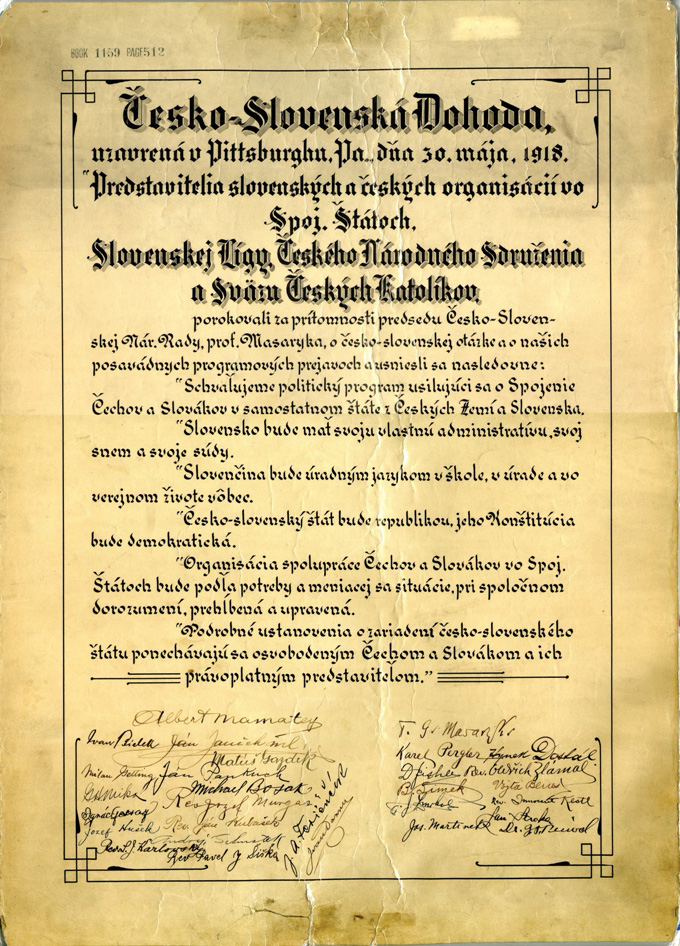 BOOK 1159 PAGE 512
Česko-Slovenská Dohoda,
uzavrená v Pittsburghu, Pa., dňa 30. mája, 1918.
"Predstavitelia slovenských a českých organisácií vo
Spoj. Štátoch,
Slovenskej Ligy, Českého Národného Sdruženia
a Sväzu Českých Katolíkov,
porokovali za prítomnosti predsedu Česko-Sloven-
skej Nár. Rady, prof. Masaryka, o česko-slovenskej otázke a o našich
posavádných programových prejavoch a usniesli sa nasledovne:
"Schvaľujeme politický program usilujúci sa o Spojenie
Čechov a Slovákov v samostatnom štáte z Českých Zemí a Slovenska.
"Slovensko bude mať svoju vlastnú administratívu, svoj
snem a svoje súdy.
"Slovenčina bude úradným jazykom v škole, v úrade a vo
verejnom živote vôbec.
"Česko-slovenský štát bude republikou, jeho Konštitúcia
bude demokratická.
"Organisácia spolupráce Čechov a Slovákov vo Spoj.
Štátoch bude podľa potreby a meniacej sa situácie, pri spoločnom
dorozumení, prehĺbená a upravená.
"Podrobné ustanovenia o zariadení česko-slovenského
štátu ponechávajú sa osvobodeným Čechom a Slovákom a ich
právoplatným predstaviteľom."
Albert Mamatey
Ivan Bielek Ján Janček ml
Matúš Gazdík
Milan Getting Ján Pankuch
Michail Bosak
Rev. Jozef Murgaš
Ignác Gessay
Jozef Hušek Rev. Ján Kubašek
Rev. Pavel J Šiška
J. A. Ferienčík
T. G. Masaryk
Karel Pergler Hynek Dostál
Rev. Oldřich Zlámal
B. Šimek Vojta Beneš
Rev. Innocent Kestl
Jos. Martinek